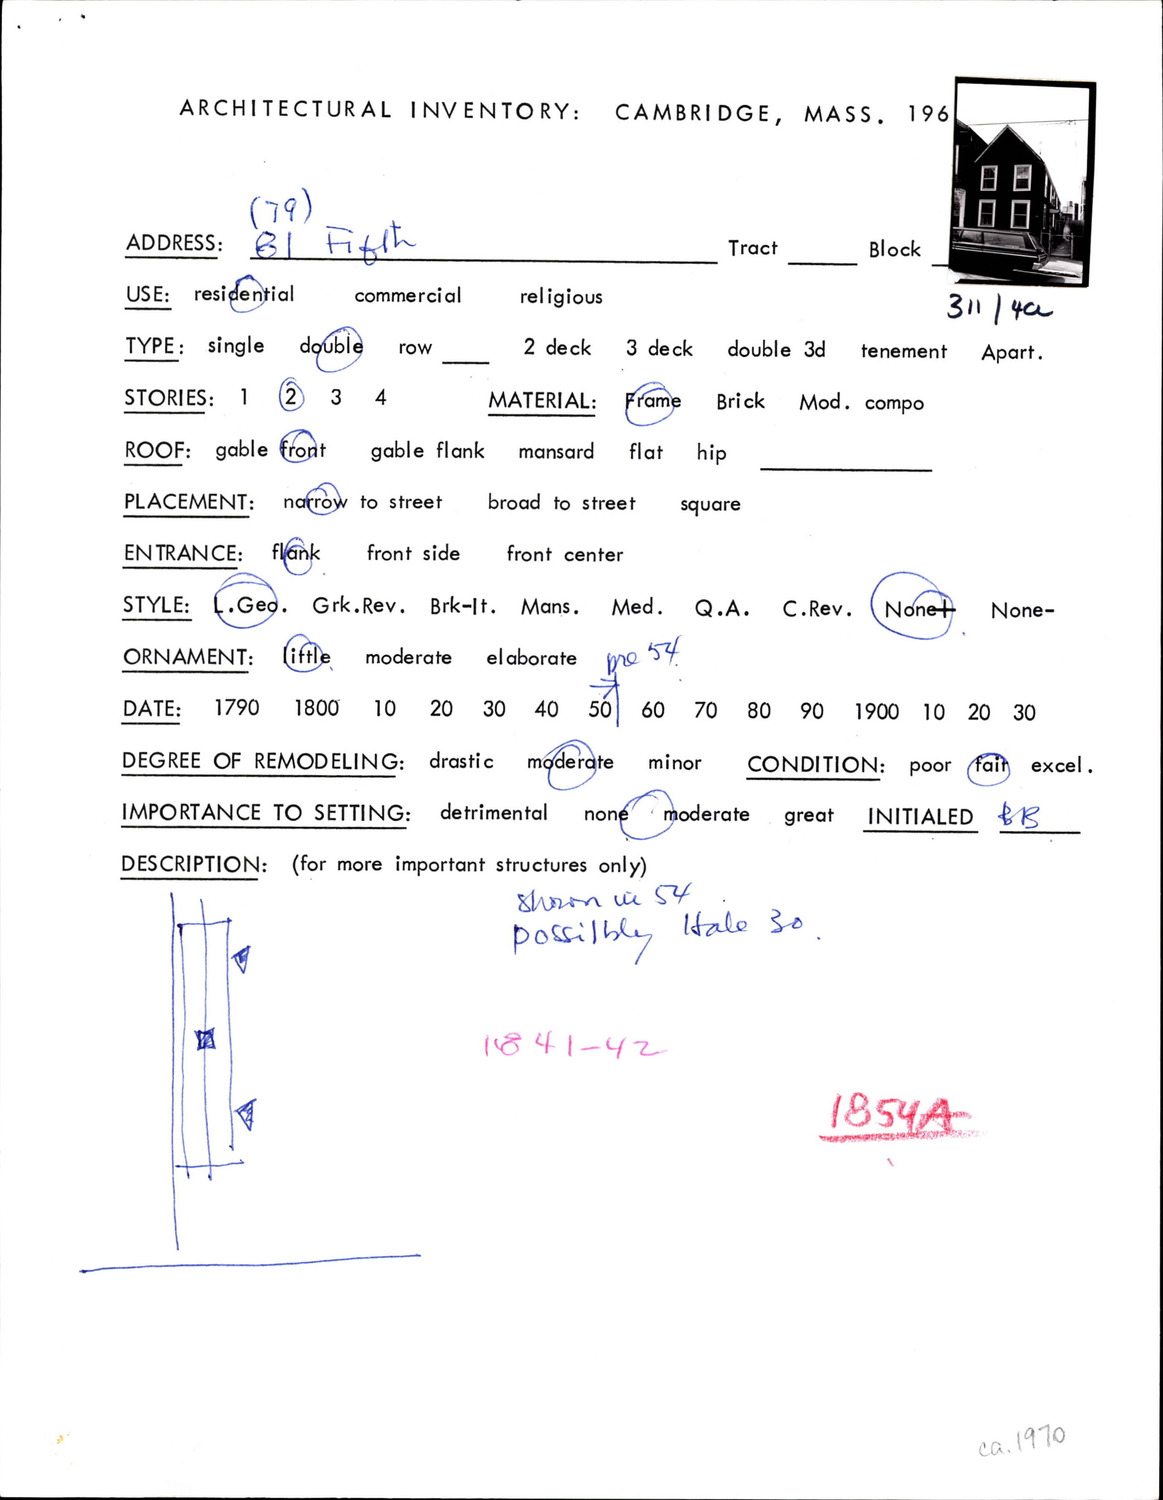 ARCHITECTURAL INVENTORY: CAMBRIDGE, MASS. 196
(79)
ADDRESS: 81 Fifth Tract ____ Block
311/4a
USE: residential commercial religious
TYPE: single double row ____ 2 deck 3 deck double 3d tenement Apart.
STORIES: 1 2 3 4 MATERIAL: Frame Brick Mod. compo
ROOF: gable front gable flank mansard flat hip ____
PLACEMENT: narrow to street broad to street square
ENTRANCE: flank front side front center
STYLE: L.Geo. Grk.Rev. Brk-It. Mans. Med. Q.A. C.Rev. None+ None-
ORNAMENT: little moderate elaborate pre 54
DATE: 1790 1800 10 20 30 40 50 60 70 80 90 1900 10 20 30
DEGREE OF REMODELING: drastic moderate minor CONDITION: poor fair excel.
IMPORTANCE TO SETTING: detrimental none moderate great INITIALED BB
DESCRIPTION: (for more important structures only)
shown in 54
possilbly Hale 30.
1841-42
1854A
ca. 1970